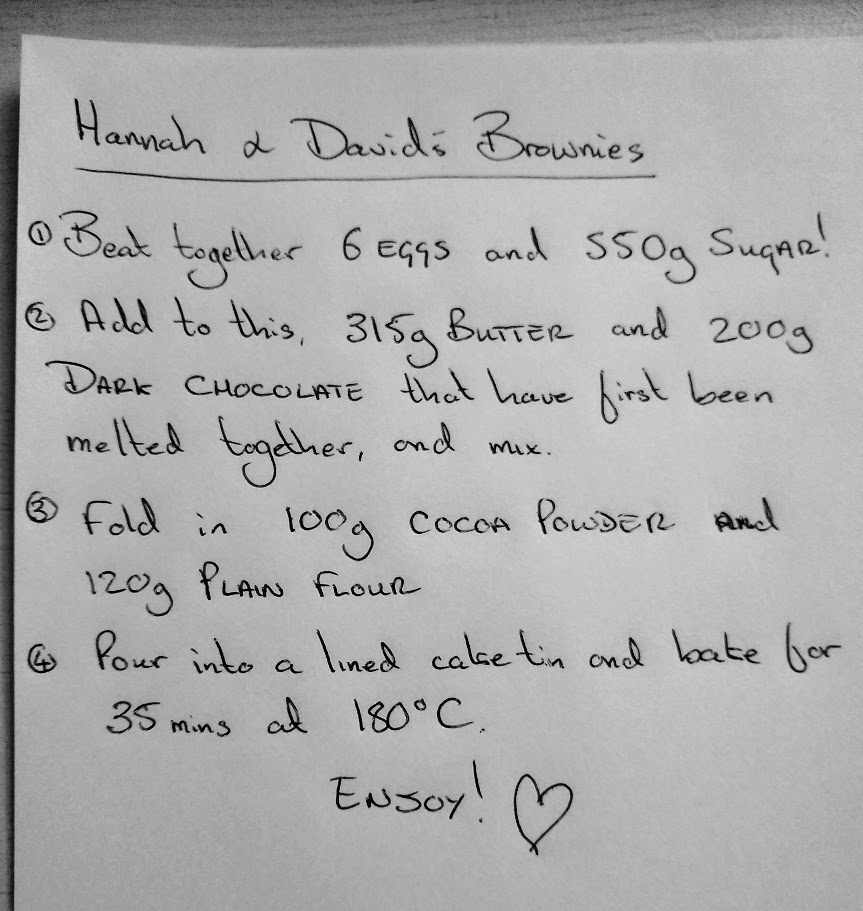 Hannah & David's Brownies
① Beat together 6 EGGS and 550g SUGAR!
② Add to this, 315g BUTTER and 200g
DARK CHOCOLATE that have first been
melted together, and mix.
③ Fold in 100g COCOA POWDER and
120g PLAIN FLOUR
④ Pour into a lined cake tin and bake for
35 mins at 180°C.
ENJOY! ♡